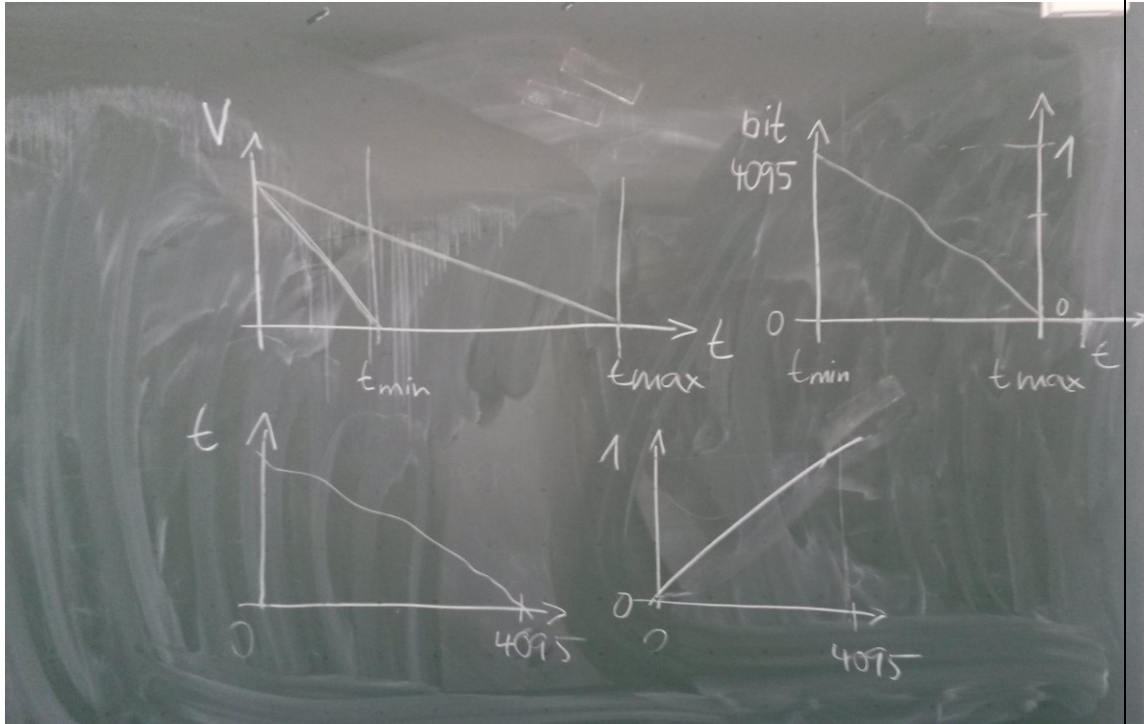 V
t
tmin
tmax
bit
4095
1
0
0
tmin
tmax
t
t
0
4095
1
0
0
4095